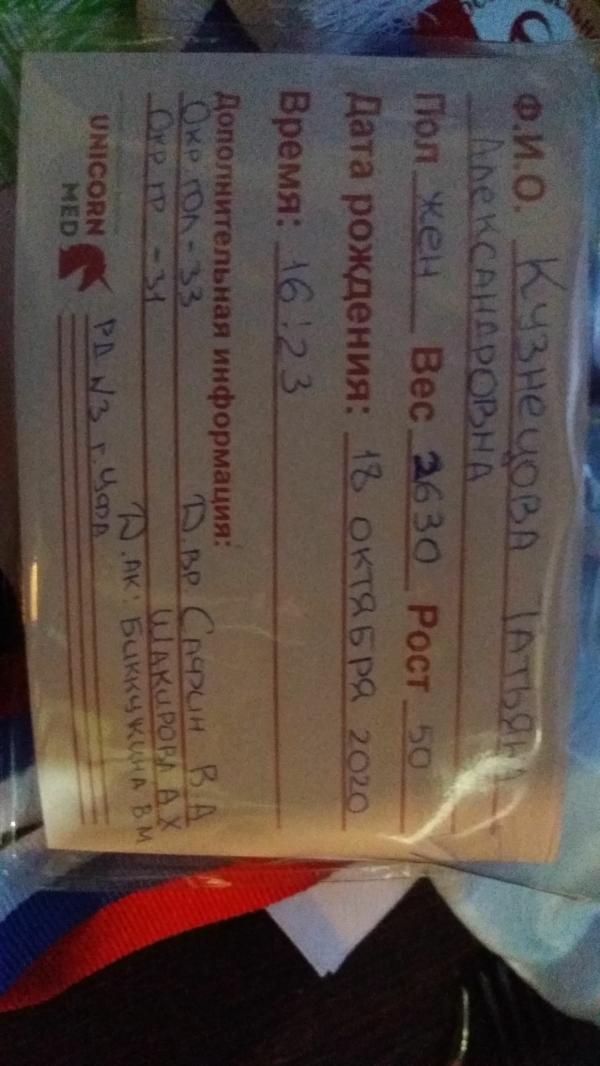 Ф.И.О. Кузнецова Татьяна
Александровна
Пол жен Вес 2630 Рост 50
Дата рождения: 18 октября 2020
Время: 16:23
Дополнительная информация:
Окр. гол - 33 Д. вр. Сафин В А
Окр. гр - 31 Шакирова А Х
Д. ак: Биккужина В М
UNICORN
MED
РД N3 г. Уфа